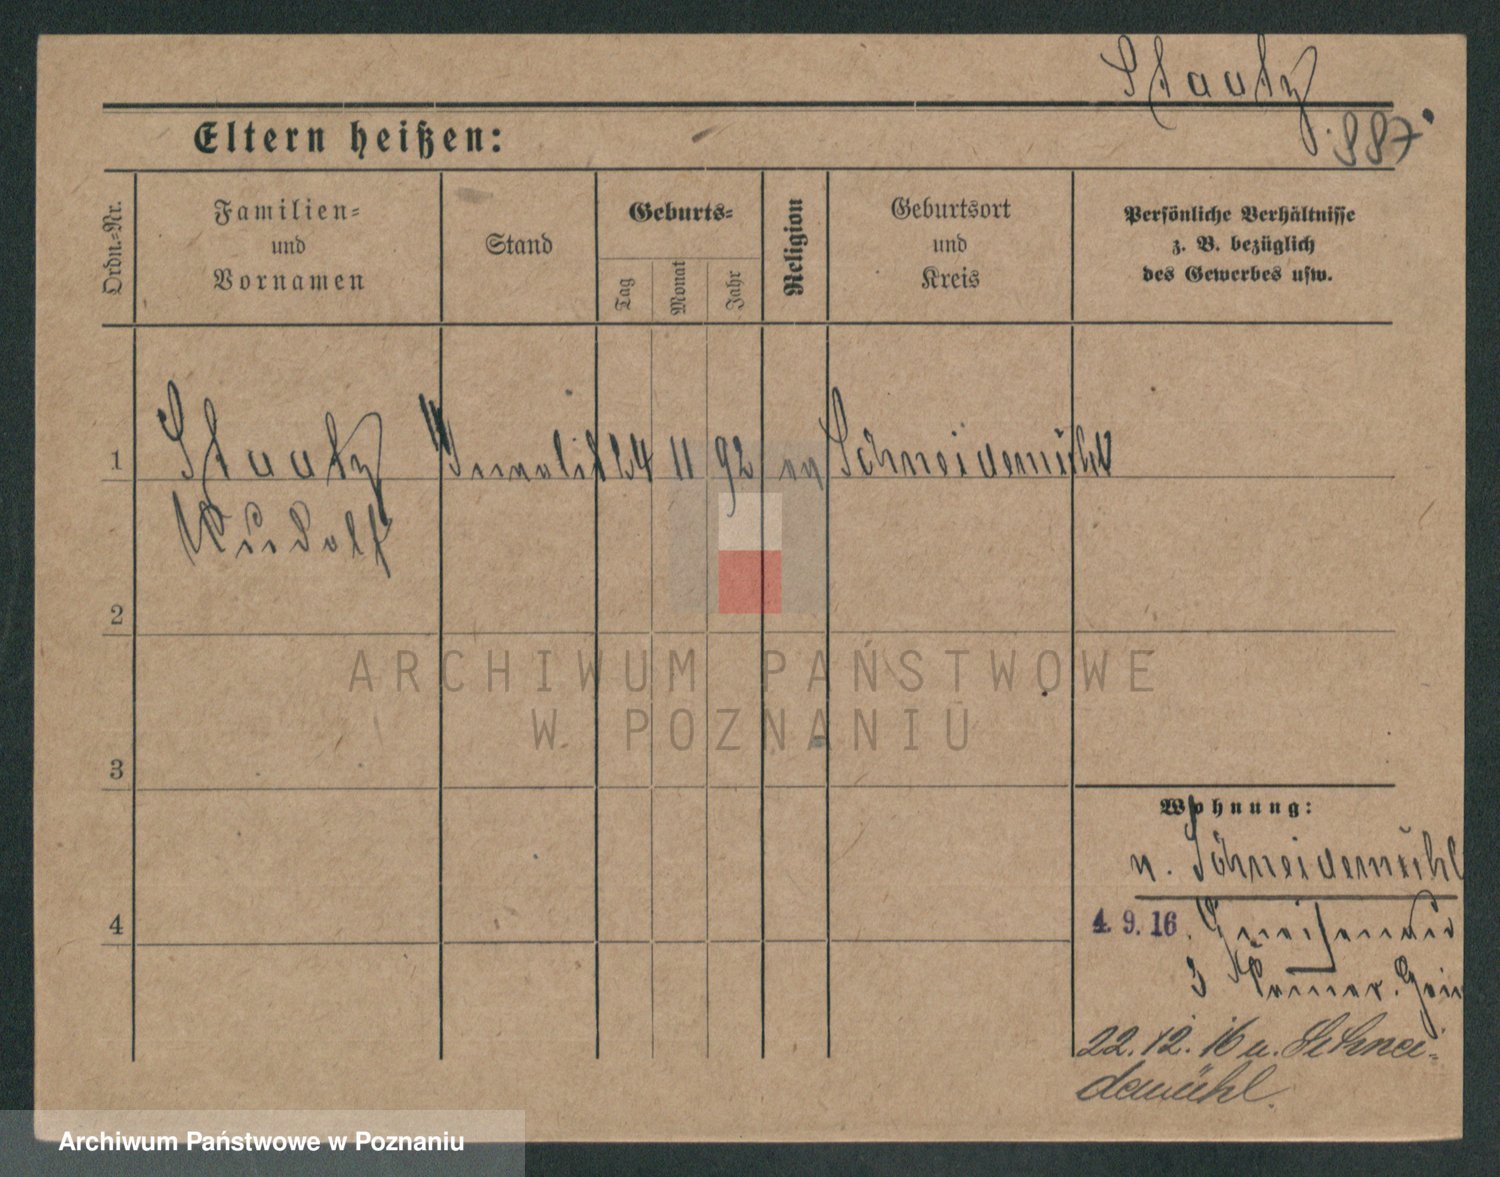 Staatz
887
Eltern heißen:
Ordn.-Nr.
Familien-
und
Vornamen
Stand
Geburts-
Tag
Monat
Jahr
Religion
Geburtsort
und
Kreis
Persönliche Verhältnisse
z. B. bezüglich
des Gewerbes usw.
1 Staatz 24 11 92 ev Schneidemühl
Rudolf
2
3
4
ARCHIWUM PAŃSTWOWE
W POZNANIU
Wohnung:
n. Schneidemühl
4. 9. 16. Gneisenau
3
22. 12. 16 n. Schnei-
demühl.
Archiwum Państwowe w Poznaniu